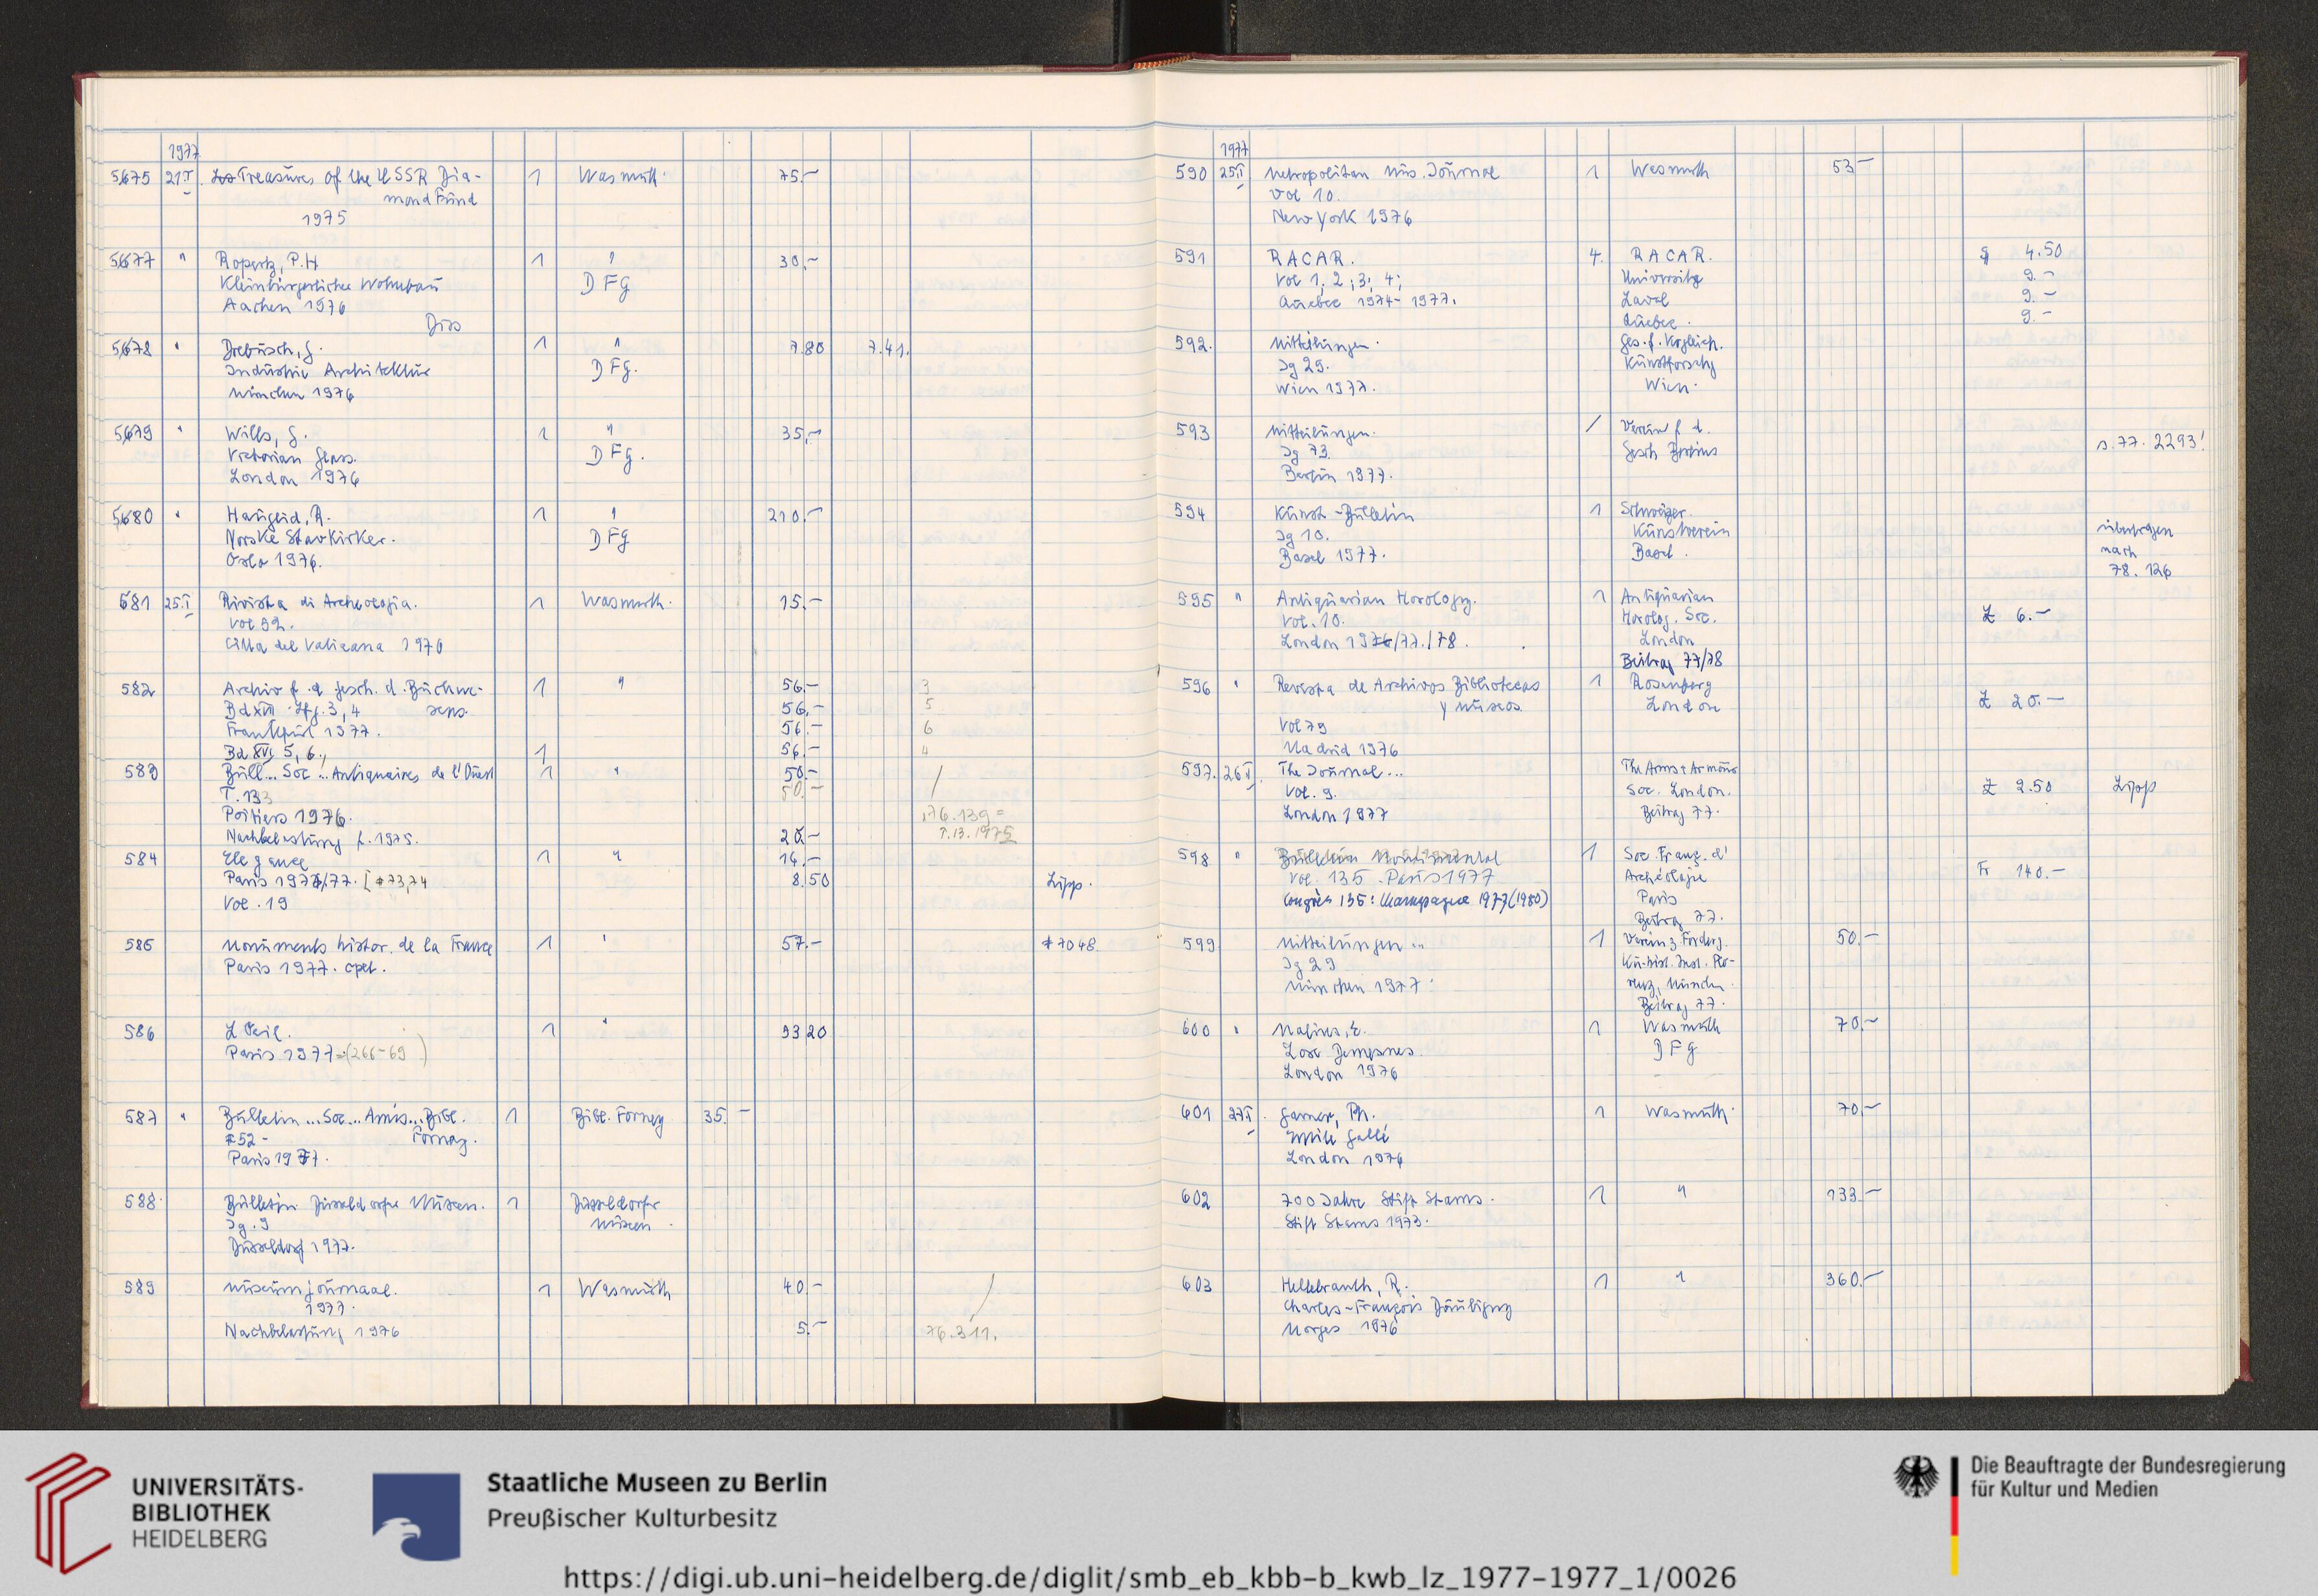 1977
5675 21.I. Treasures of the USSR Dia- 1 Wasmuth 75.-
mond Fund
1975
5677 " Ropertz, P.H 1 " 30,-
Kleinbürgerlicher Wohnbau DFG
Aachen 1976
Diss
5678 " Drebusch, G. 1 " 7.80 7.41.
Industrie Architektur DFG.
München 1976
5679 " Wills, G. 1 " 35,-
Victorian Glass. DFG.
London 1976
5680 " Hauglid, R. 1 " 210.-
Norske Stavkirker. DFG
Oslo 1976.
581 25.I Rivista di Archeologia. 1 Wasmuth. 15.-
Vol 52.
Citta del Vaticana 1976
582 Archiv f. d. Gesch. d. Buchwe- 1 " 56.- 3
Bd XVII Lfg. 3, 4 sens. 56.- 5
Frankfurt 1977. 56.- 6
Bd XVI 5, 6., 1 56.- 4
583 Bull... Soc... Antiquaires de l'Ouest 1 " 50.- /
T. 133 50.-
Poitiers 1976. 76.139=
Nachbelastung f. 1975. 20.- T.13.1975
584 Elegance 1 " 14.-
Paris 1976/77. [ # 73,74 8.50 Lipp.
Vol. 19
585 Monuments histor. de la France 1 " 57.- # 7048
Paris 1977. cplt.
586 L'Oeil. 1 " 93 20
Paris 1977 =(266-69 )
587 " Bulletin...Soc...Amis...Bibl. 1 Bibl. Forney 35.-
# 52 - Forney.
Paris 1977.
588 Bulletin Düsseldorfer Museen. 1 Düsseldorfer
Jg. 9 Museen.
Düsseldorf 1977.
589 Museumjournaal. 1 Wasmuth 40.- /
1977.
Nachbelastung 1976 5.- 76.311.
1977
590 25.I Metropolitan Mus. Journal 1 Wasmuth 53.-
Vol 10.
New York 1976
591 RACAR. 4. RACAR. $ 4.50
Vol 1, 2; 3; 4; Université 9.-
Quebec 1974-1977. Laval 9.-
Quebec. 9.-
592. Mitteilungen. Ges. f. Vergleich.
Jg 29. Kunstforschg
Wien 1977. Wien.
593 Mitteilungen. / Verein f. d. s. 77. 2293!
Jg 73. Gesch Berlins
Berlin 1977.
594 Kunst-Bulletin 1 Schweizer.
Jg 10. Kunstverein übertragen
Basel 1977. Basel. nach
78. 126
595 " Antiquarian Horology. 1 Antiquarian
Vol. 10. Horolog. Soc. £ 6.-
London 1976/77./78. London
Beitrag 77/78
596 " Revista de Archivos Bibliotecas 1 Rosenberg
y Museos London £ 20.-
Vol 79
Madrid 1976
597. 26.I. The Journal... The Arms & Armour
Vol. 9. Soc. London. £ 2.50 Lipp
London 1977 Beitrag 77.
598 " Bulletin Monumental 1 Soc. Franç. d'
Vol. 135. Paris 1977 Archéologie Fr 140.-
Congrès 135: Champagne 1977 (1980) Paris
Beitrag 77.
599 Mitteilungen.. 1 Verein z. Förderg. 50.-
Jg 29 Ku-hist. Inst. Flo-
München 1977. renz, München.
Beitrag 77.
600 " 1 Wasmuth 70.-
DFG
London 1976
601 27.I. Garner, Ph. 1 Wasmuth. 70,-
Emile Gallé
London 1976
602 700 Jahre Stift Stams. 1 " 133.-
Stift Stams 1973.
603 Hellebranth, R. 1 " 360.-
Charles-François Daubigny
Morges 1976
UNIVERSITÄTS-
BIBLIOTHEK
HEIDELBERG
Staatliche Museen zu Berlin
Preußischer Kulturbesitz
Die Beauftragte der Bundesregierung
für Kultur und Medien
https://digi.ub.uni-heidelberg.de/diglit/smb_eb_kbb-b_kwb_lz_1977-1977_1/0026